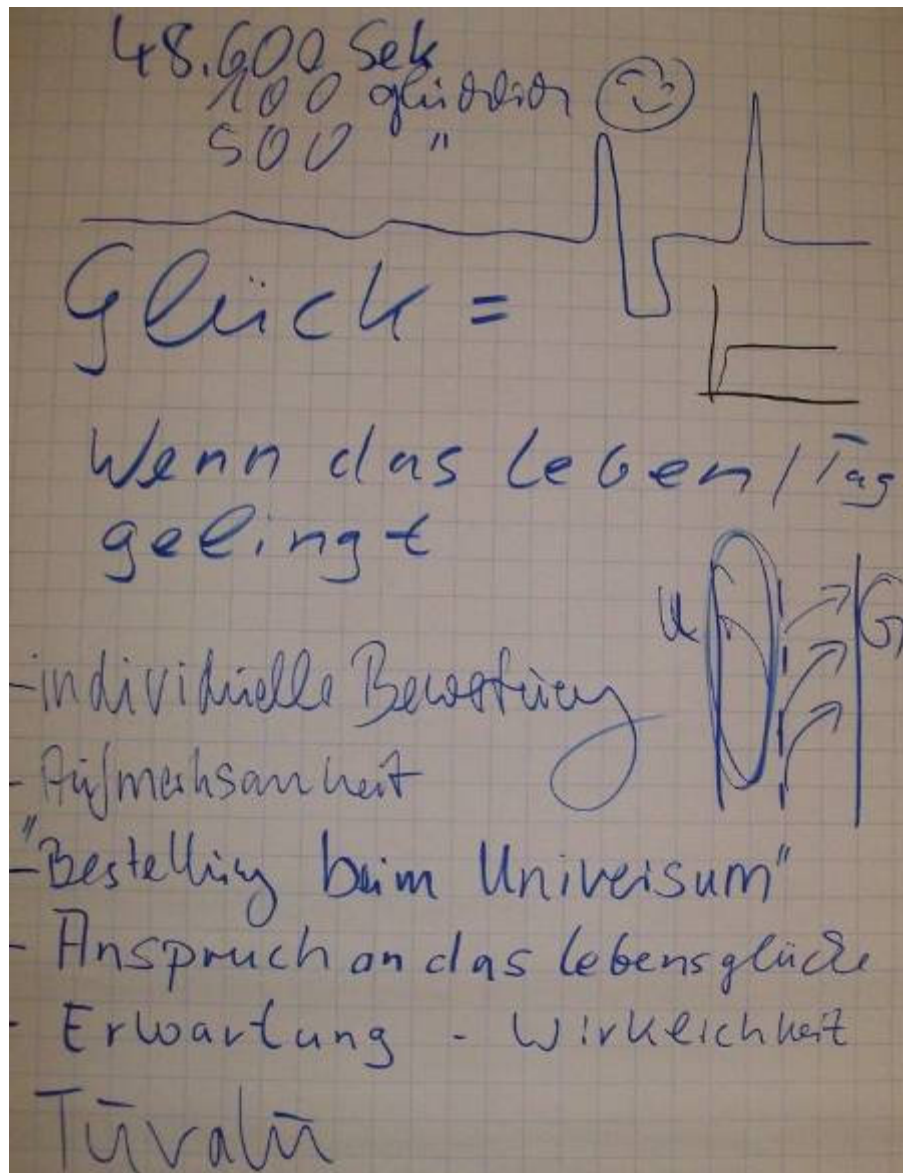 48.600 Sek
100 glücklich
500 "
Glück =
Wenn das Leben / Tag
gelingt
U G
- individuelle Bewertung
- Aufmerksamkeit
- "Bestellung beim Universum"
- Anspruch an das Lebensglück
- Erwartung - Wirklichkeit
Tuvalu